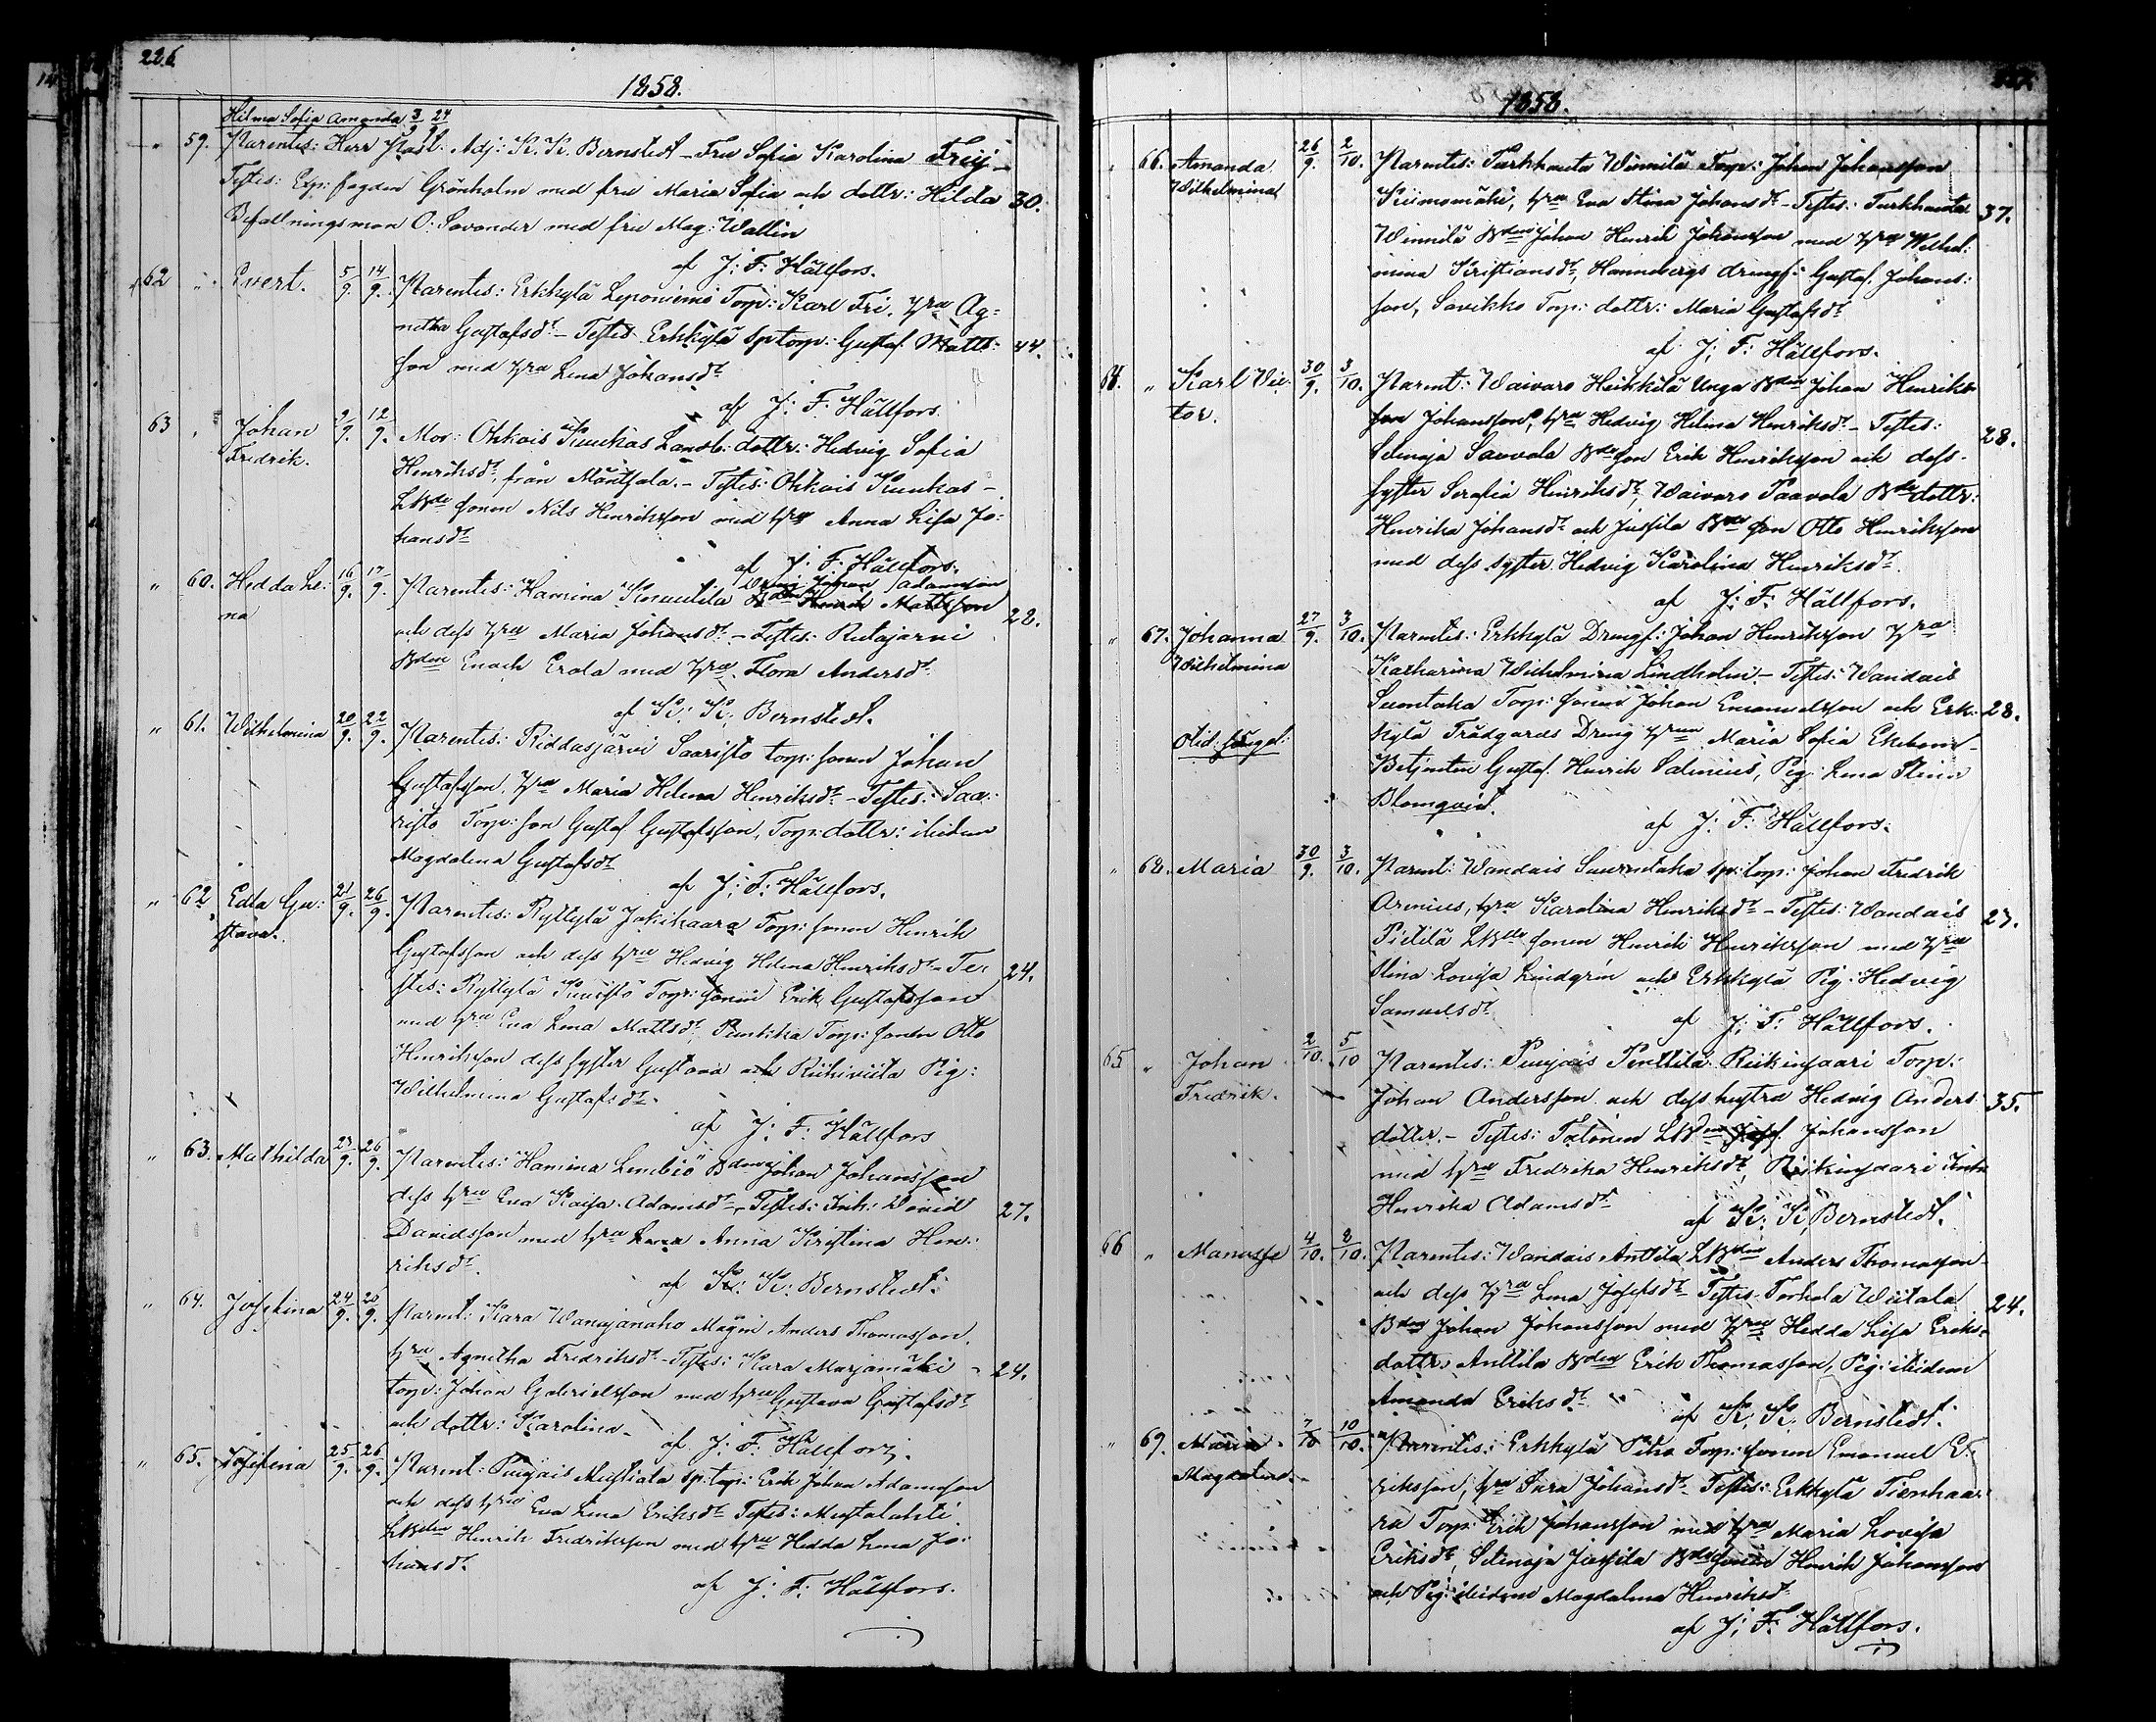 226
1858.
Hilma Sofia Amanda 3/9 24/9
" 59. Parentes: Herr Past. Adj: K. K. Bernstedt – Fru Sofia Karolina Frey –
Testes: Exp: fogden Grönholm med fru Maria Sofia och dottr: Hilda 30.
Befallningsman O: Savander med fru Mag: Wallin
af J: F: Hällfors.
62 " Evert. 5/9. 14/9. Parentes: Erkkylä Leponiemi Torp: Karl Fri, hra Ag=
netha Gustafsdr – Testes Erkkylä sptorp: Gustaf Matts: 44.
son med hra Lena Johansdr
af J: F: Hällfors.
63 " Johan 2/9. 12/9. Mor: Ohkois Kuukas Landb: dottr: Hedvig Sofia
Fredrik. Henriksdr, från Mäntsala. – Testes: Ohkois Kuukas –
LBde sonen Nils Henriksson med hra Anna Lisa Jo:
hansdr
af J: F: Hällfors.
Dreng Johan Adamsson
" 60. Hedda Le: 16/9. 17/9. Parentes: Hamina Knuutila Bden Henrik Mattsson 28.
na och dess hra Maria Johansdr – Testes: Rutajärvi
Bden Enoch Erola med hra Flora Andersdr
af K: K: Bernstedt.
" 61. Wilhelmina 20/9. 22/9. Parentes: Riddasjärvi Saaristo torp: sonen Johan
Gustafsson, hra Maria Helena Henriksdr – Testes: Saa:
risto Torp: son Gustaf Gustafsson, Torp: dottr: ibidem
Magdalena Gustafsdr
af J: F: Hällfors.
" 62. Edla Gu: 21/9. 26/9. Parentes: Ryttylä Jokihaara Torp: sonen Henrik
stava. Gustafsson och dess hra Hedvig Helena Henriksdr – Te: 24.
stes: Ryttylä Torp: sonen Erik Gustafsson
med hra Eva Lena Mattsdr, Punkka Torp: sonen Otto
Henriksson dess syster Gustava och Riihiviita Pig:
Wilhelmina Gustafsdr
af J: F: Hällfors
" 63. Mathilda 23/9. 26/9. Parentes: Hamina Lembiö Bden Johan Johansson
dess hra Eva Kaisa Adamsdr – Testes: Inh: David 27.
Davidsson med hra Anna Kristina Hen:
riksdr.
af K: K: Bernstedt.
" 64. Josefina 24/9. 26/9. Parent: Kara Wanajanaho Mågen Anders Thomasson,
hra Agnetha Fredriksdr – Testes: Kara Marjamäki – 24.
torp: Johan Gabrielsson med hra Gustava Gustafsdr
och dottr: Karolina –
af J: F: Hällfors.
" 65. Josefina 25/9. 26/9. Parent: Puujais Mustiala sp: torp: Erik Johan Adamsson
och dess hra Eva Lena Eriksdr Testes: Mustalahti
LBden Henrik Fredriksson med hra Hedda Lena Jo:
hansdr.
af J: F: Hällfors.
1858.
" 66. Amanda 26/9. 2/10. Parentes: Turkhauta Winnilä Torp: Johan Johansson
Wilhelmina Kiimomäki, hra Eva Stina Johansdr – Testes: Turkhauta 37.
Winnilä Bden Johan Henrik Johansson med hra Wilhel:
mina Kristiansdr, Hannebergs drengf: Gustaf Johans:
son, Savikko Torp: dottr: Maria Gustafsdr
af J: F: Hällfors.
64. " Karl Vic: 30/9. 3/10. Parent: Waivaro Heikkilä Unga Bden Johan Henriks
tor. son Johansson, hra Hedvig Helena Henriksdr – Testes: 28.
Selinoja Savvala Bdeson Erik Henriksson och dess
syster Serafia Henriksdr, Waivaro Paavola Bdedottr:
Henrika Johansdr och Jussila Bdeson Otto Henriksson
med dess syster Hedvig Karolina Henriksdr
af J: F: Hällfors.
" 67. Johanna 27/9. 3/10. Parentes: Erkkylä Drengf: Johan Henriksson hra
Wilhelmina Katharina Wilhelmina Lindholm. – Testes: Wandais
Suontaka Torp: sonen Johan Emanuelsson och Erk: 28.
kylä Trädgårds Dreng hrun Maria Sofia Ekebom –
Betjenten Gustaf Henrik Salenius, Pig: Lena Stina
Blomqvist.
af J: F: Hällfors.
" 68. Maria 30/9. 3/10. Parent: Wandais Suontaka sp: torp: Johan Fredrik
Arenius, hra Karolina Henriksdr – Testes: Wandais 23.
Pietilä LBde sonen Henrik Henriksson med hra
Stina Lovisa Lindgrén och Erkkylä Pig: Hedvig
Samuelsdr
af J: F: Hällfors.
65 " Johan 2/10. 5/10 Parentes: Puujais Penttilä Riikinsaari Torp:
Fredrik. Johan Andersson och dess hustru Hedvig Anders 35.
dotter. – Testes: Talonen LBden Johansson
med hra Fredrika Henriksdr, Riikinsaari Inh:
Henrika Adamsdr
af K: K: Bernstedt.
66 " Manasse 4/10. 8/10. Parentes: Wandais Anttila LBden Anders Thomasson
och dess hra Lena Josefsdr Testes Torhola Wiitala 24.
Bden Johan Johansson med hra Hedda Lisa Eriks=
dottr, Anttila Bden Erik Thomasson, Pig: ibidem
Amanda Eriksdr
af K: K: Bernstedt.
" 69. Maria 7/10 10/10. Parentes: Erkkylä Torp: sonen Emanuel E:
Magdalena. riksson, hra Sara Johansdr – Testes: Erkkylä Tienhaa:
ra Torp: Erik Johansson med hra Maria Lovisa
Eriksdr, Selinoja Jussila Bdesonen Henrik Johansson
och Pig: ibidem Magdalena Henriksdr
af J: F: Hällfors.